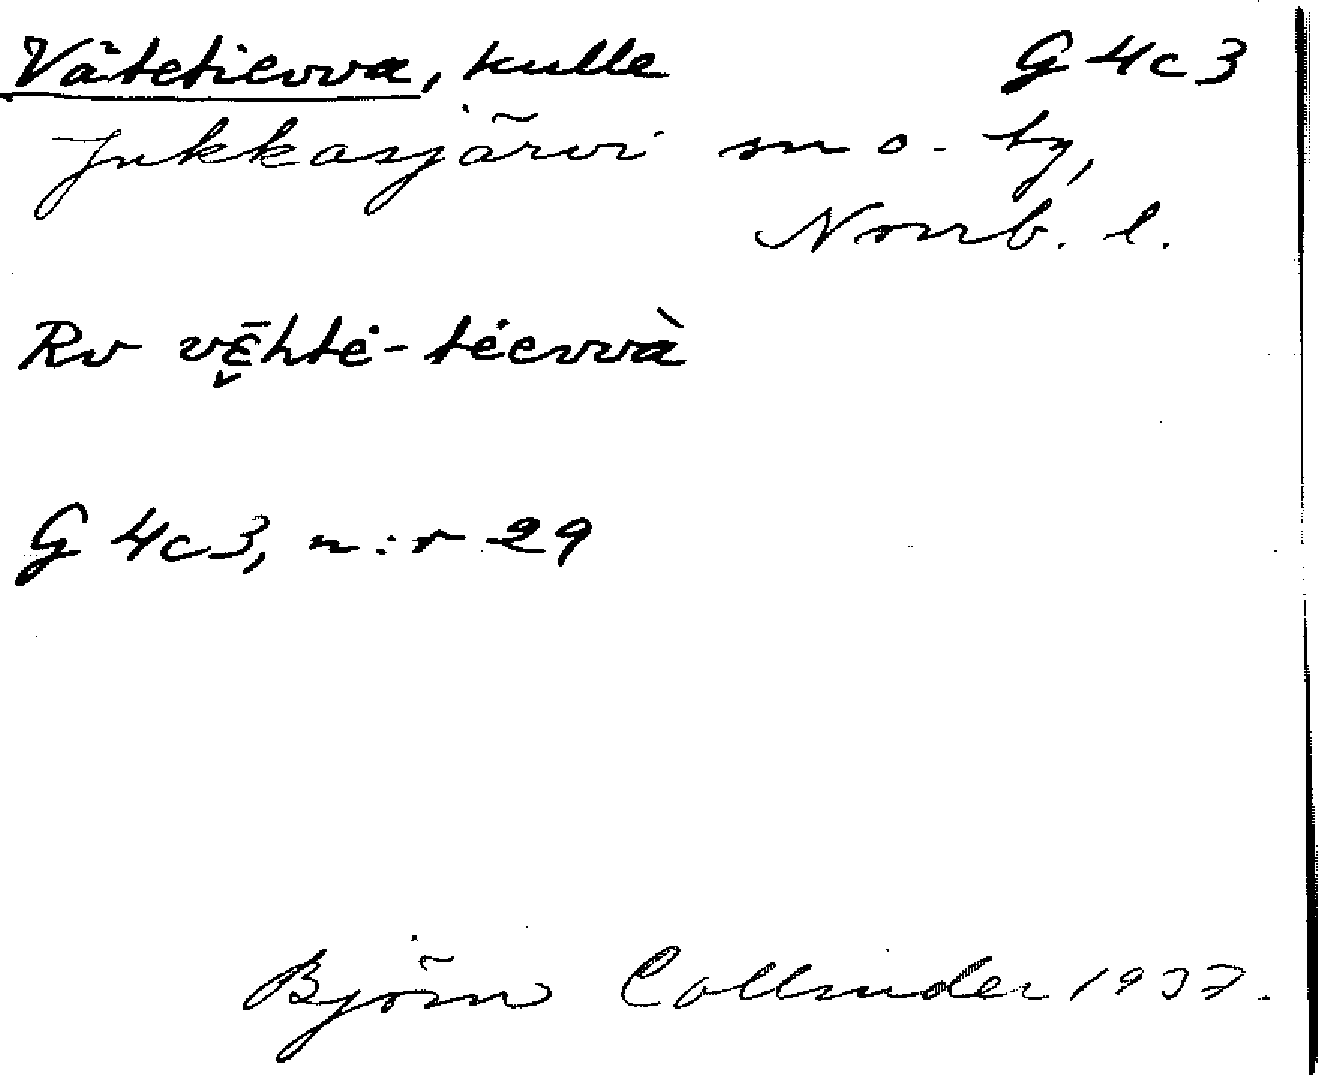 Vätetievva, kulle G 4c3
Jukkasjärvi sn o. by,
Norrb. l.
Rv vē̮htė-tėevvà
G 4c3, n:r 29
Björn Collinder 1937.